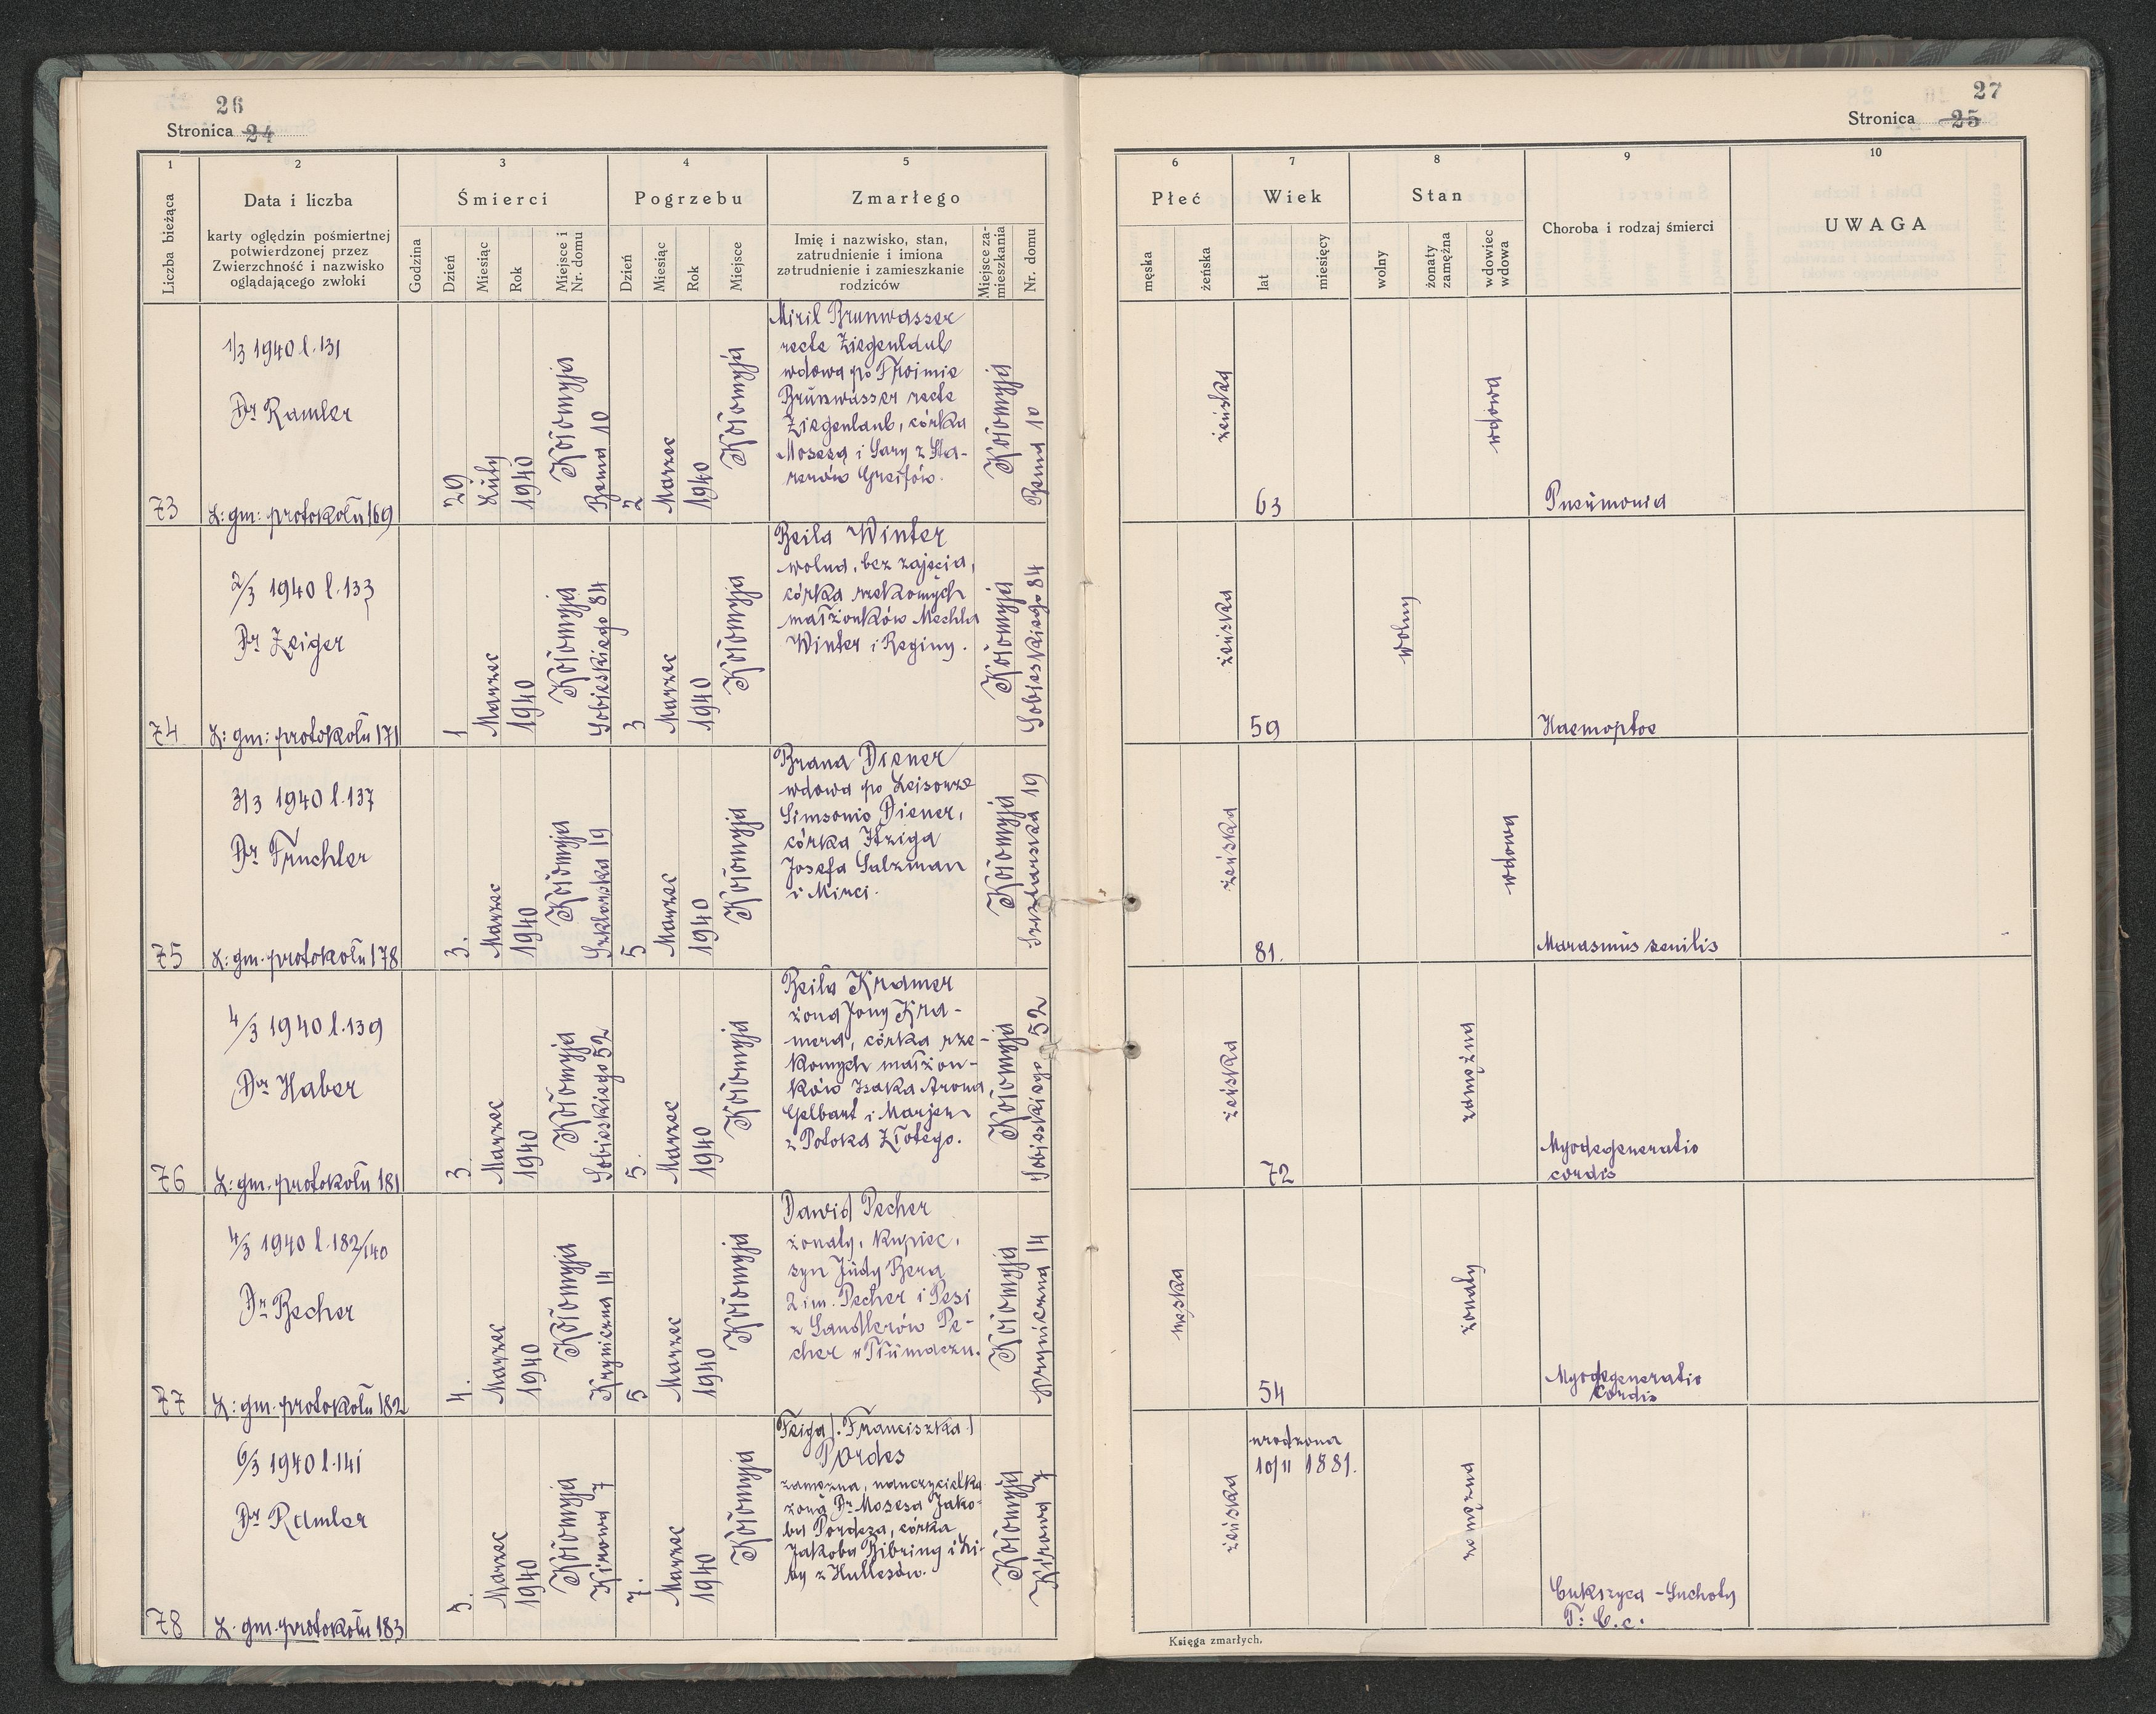 26
Stronica 24
1
2
3
4
5
Liczba bieżąca
Data i liczba
karty oględzin pośmiertnej
potwierdzonej przez
Zwierzchność i nazwisko
oglądającego zwłoki
Śmierci
Godzina
Dzień
Miesiąc
Rok
Miejsce i
Nr. domu
Pogrzebu
Dzień
Miesiąc
Rok
Miejsce
Zmarłego
Imię i nazwisko, stan,
zatrudnienie i imiona
zatrudnienie i zamieszkanie
rodziców
Miejsce za-
mieszkania
Nr. domu
73
1/3 1940 l. 131
Dr Ramler
L: gm: protokołu 169
29
Luty
1940
Kołomyja
Bema 10
2
Marzec
1940
Kołomyja
Miril Brunwasser
recte Ziegenlaub
wdowa po Froimie
Brunwasser recte
Ziegenlaub, córka
Mosesa i Sary z Sta-
rerów Greifów.
Kołomyja
Bema 10
74
2/3 1940 l. 133
Dr Zeiger
L: gm: protokołu 171
1
Marzec
1940
Kołomyja
Sobieskiego 84
3
Marzec
1940
Kołomyja
Beila Winter
wolna, bez zajęcia,
córka rzekomych
małżonków Mechla
Winter i Reginy.
Kołomyja
Sobieskiego 84
75
3/3 1940 l. 137
Dr Fruchter
L: gm. protokołu 178
3.
Marzec
1940
Kołomyja
Szklarska 19
5
Marzec
1940
Kołomyja
Brana Diener
wdowa po Leisorze
Simsonie Diener,
córka Itziga
Josefa Salzman
i Mirci.
Kołomyja
19
76
4/3 1940 l. 139
Dr Haber
L: gm. protokołu 181
3.
Marzec
1940
Kołomyja
Sobieskiego 52
5.
Marzec
1940
Kołomyja
Beila Kramer
żona Jony Kra-
mera, córka rze-
komych małżon-
ków Isaka Arona,
Gelbart i Marjem
z Potoka Złotego.
Kołomyja
Sobieskiego 52
77
4/3 1940 l. 182/140
Dr Becher
L: gm. protokołu 182
4.
Marzec
1940
Kołomyja
Kryniczna 14
5
Marzec
1940
Kołomyja
Dawid Pecher
żonaty, kupiec,
syn Judy Bera
2 im. Pecher i Pesi
z Sandlerów Pe-
cher w Tłumaczu.
Kołomyja
Kryniczna 14
78
6/3 1940 l. 141
Dr Ramler
L. gm. protokołu 183
5.
Marzec
1940
Kołomyja
Kirowa 7
7.
Marzec
1940
Kołomyja
Feiga /. Franciszka ./
Pordes
zamężna, nauczycielka
żona Dr Mosesa Jako-
ba Pordesa, córka
Jakoba Bibring i Li-
by z Hullesów.
Kołomyja
Kirowa 7
27
Stronica 25
6
7
8
9
10
Płeć
męska
żeńska
Wiek
lat
miesięcy
Stan
wolny
żonaty
zamężna
wdowiec
wdowa
Choroba i rodzaj śmierci
UWAGA
żeńska
63
wdowa
Pneumonia
żeńska
59
wolny
Haemoptoe
żeńska
81.
wdowa
Marasmus senilis
żeńska
72
zamężna
Myodegeneratio
cordis
męska
54
żonaty
Myodegeneratio
Cordis
żeńska
urodzona
10/II 1881.
zamężna
Cukrzyca - Suchoty
T: b. c.
Księga zmarłych.